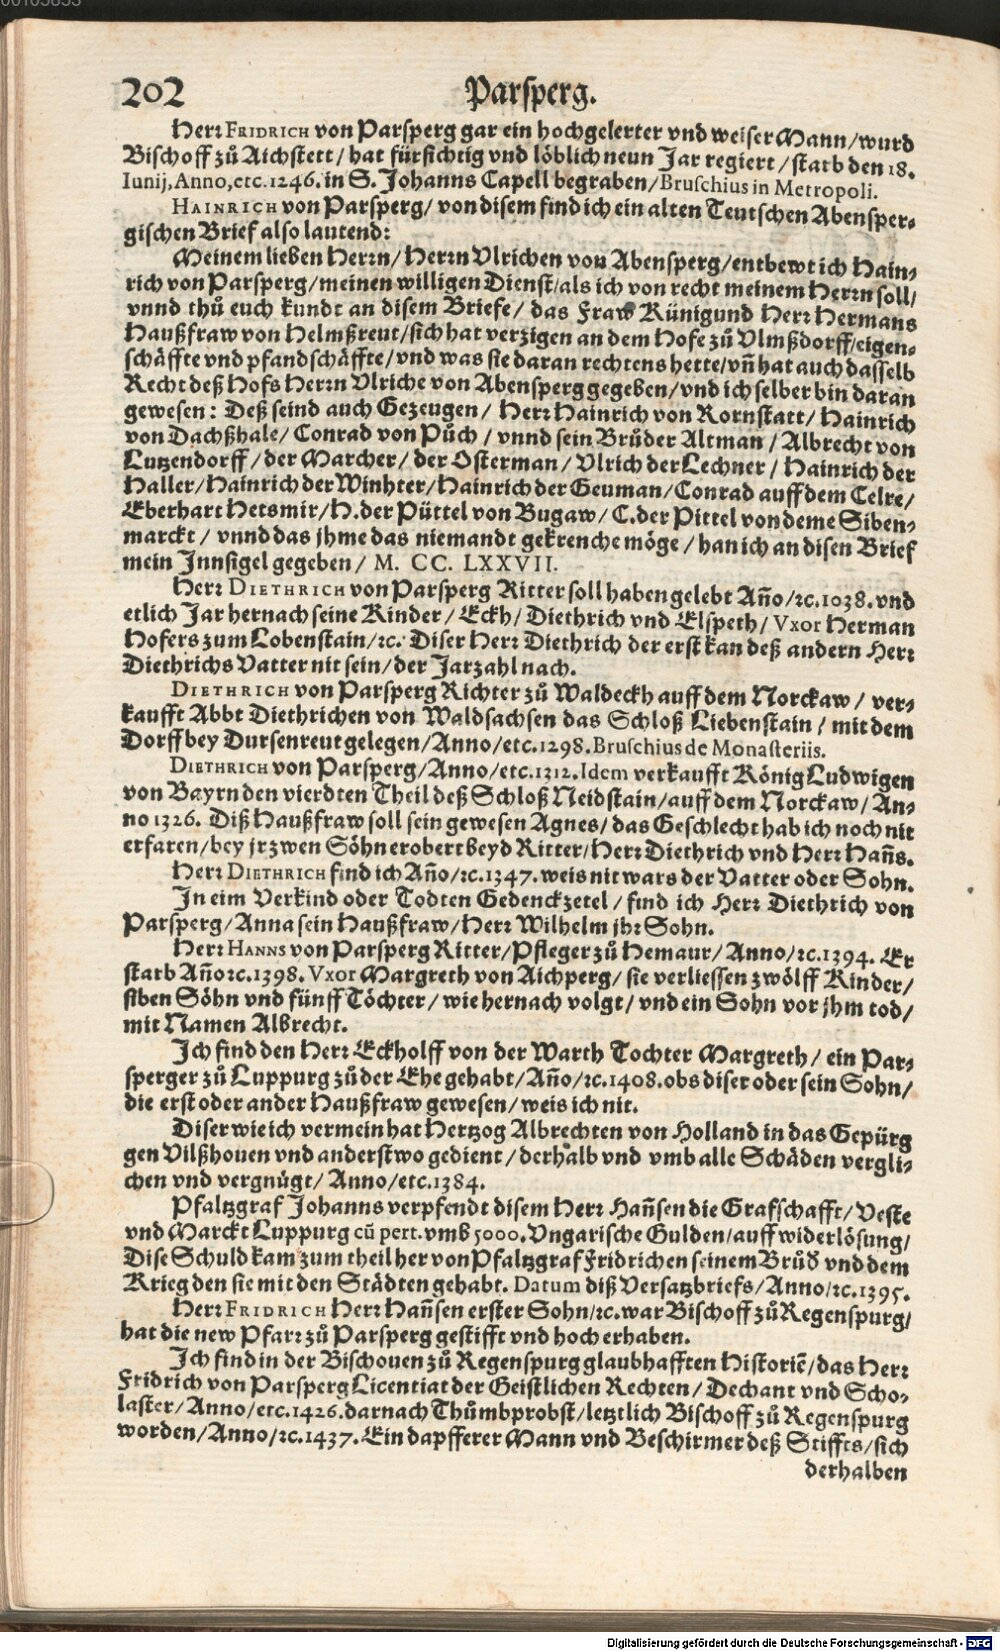 202 Parſperg.
Herꝛ FRIDRICH von Parſperg gar ein hochgelerter vnd weiſer Mann/wurd
Biſchoff zů Aichſtett/ hat fürſichtig vnd löblich neun Jar regiert/ ſtarb den 18.
Iunij, Anno, etc. 1246. in S. Johanns Capell begraben/ Bruſchius in Metropoli.
HAINRICH von Parſperg/ von diſem find ich ein alten Teutſchen Abenſper⸗
giſchen Brief alſo lautend:
Meinem lieben Herꝛn/ Herꝛn Vlrichen von Abenſperg/entbewt ich Hain⸗
rich von Parſperg/meinen willigen Dienſt/als ich von recht meinem Herꝛn ſoll/
vnnd thů euch kundt an diſem Briefe/ das Fraw Künigund Herꝛ Hermans
Haußfraw von Helmßreut/ſich hat verzigen an dem Hofe zů Vlmßdorff/eigen⸗
ſchäffte vnd pfandſchäffte/vnd was ſie daran rechtens hette/vñ hat auch daſſelb
Recht deß Hofs Herꝛn Vlriche von Abenſperg gegeben/vnd ich ſelber bin daran
geweſen: Deß ſeind auch Gezeugen/ Herꝛ Hainrich von Rornſtatt/ Hainrich
von Dachßhale/ Conrad von Půch/ vnnd ſein Brůder Altman/ Albrecht von
Lutzendorff/ der Marcher/ der Oſterman/ Vlrich der Lechner/ Hainrich der
Haller/Hainrich der Winhter/Hainrich der Geuman/Conrad auff dem Celre/
Eberhart Hetsmir/H. der Püttel von Bugaw/ C. der Pittel von deme Siben⸗
marckt/ vnnd das jhme das niemandt gekrenche möge/ han ich an diſen Brief
mein Innſigel gegeben/ M. CC. LXXVII.
Herꝛ DIETHRICH von Parſperg Ritter ſoll haben gelebt Año/ꝛc. 1038. vnd
etlich Jar hernach ſeine Kinder/ Eckh/ Diethrich vnd Elſpeth/ Vxor Herman
Hofers zum Lobenſtain/ꝛc. Diſer Herꝛ Diethrich der erſt kan deß andern Herꝛ
Diethrichs Vatter nit ſein/ der Jarzahl nach.
DIETHRICH von Parſperg Richter zů Waldeckh auff dem Norckaw/ ver⸗
kaufft Abbt Diethrichen von Waldſachſen das Schloß Liebenſtain/ mit dem
Dorff bey Durſenreut gelegen/Anno/etc. 1298. Bruſchius de Monaſteriis.
DIETHRICH von Parſperg/Anno/etc. 1312. Idem verkaufft König Ludwigen
von Bayrn den vierdten Theil deß Schloß Neidſtain/auff dem Norckaw/ An⸗
no 1326. Diß Haußfraw ſoll ſein geweſen Agnes/ das Geſchlecht hab ich noch nit
erfaren/bey jr zwen Söhn erobert beyd Ritter/Herꝛ Diethrich vnd Herꝛ Hañs.
Herꝛ DIETHRICH find ich Año/ꝛc. 1347. weis nit wars der Vatter oder Sohn.
In eim Verkind oder Todten Gedenckzetel/ find ich Herꝛ Diethrich von
Parſperg/Anna ſein Haußfraw/Herꝛ Wilhelm jhꝛ Sohn.
Herꝛ HANNS von Parſperg Ritter/Pfleger zů Hemaur/ Anno/ꝛc. 1394. Er
ſtarb Año ꝛc. 1398. Vxor Margreth von Aichperg/ ſie verlieſſen zwölff Kinder/
ſiben Söhn vnd fünff Töchter/ wie hernach volgt/ vnd ein Sohn vor jhm tod/
mit Namen Albrecht.
Ich find den Herꝛ Eckholff von der Warth Tochter Margreth/ ein Par⸗
ſperger zů Luppurg zů der Ehe gehabt/Año/ꝛc. 1408. obs diſer oder ſein Sohn/
die erſt oder ander Haußfraw geweſen/weis ich nit.
Diſer wie ich vermein hat Hertzog Albrechten von Holland in das Gepürg
gen Vilßhouen vnd anderſtwo gedient/ derhalb vnd vmb alle Schäden vergli⸗
chen vnd vergnügt/ Anno/etc. 1384.
Pfaltzgraf Johanns verpfendt diſem Herꝛ Hañſen die Grafſchafft/ Veſte
vnd Marckt Luppurg cũ pert. vmb 5000. Vngariſche Gulden/auff widerlöſung/
Diſe Schuld kam zum theil her von Pfaltzgraf Fridrichen ſeinem Brůd̓ vnd dem
Krieg den ſie mit den Städten gehabt. Datum diß Verſatzbriefs/Anno/ꝛc. 1395.
Herꝛ FRIDRICH Herꝛ Hañſen erſter Sohn/ꝛc. war Biſchoff zů Regenſpurg/
hat die new Pfarꝛ zů Parſperg geſtifft vnd hoch erhaben.
Ich find in der Biſchouen zů Regenſpurg glaubhafften Hiſtoriẽ/das Herꝛ
Fridrich von Parſperg Licentiat der Geiſtlichen Rechten/ Dechant vnd Scho⸗
laſter/Anno/etc. 1426. darnach Thůmbprobſt/letztlich Biſchoff zů Regenſpurg
worden/Anno/ꝛc. 1437. Ein dapfferer Mann vnd Beſchirmer deß Stiffts/ſich
derhalben
Digitalisierung gefördert durch die Deutsche Forschungsgemeinschaft - DFG